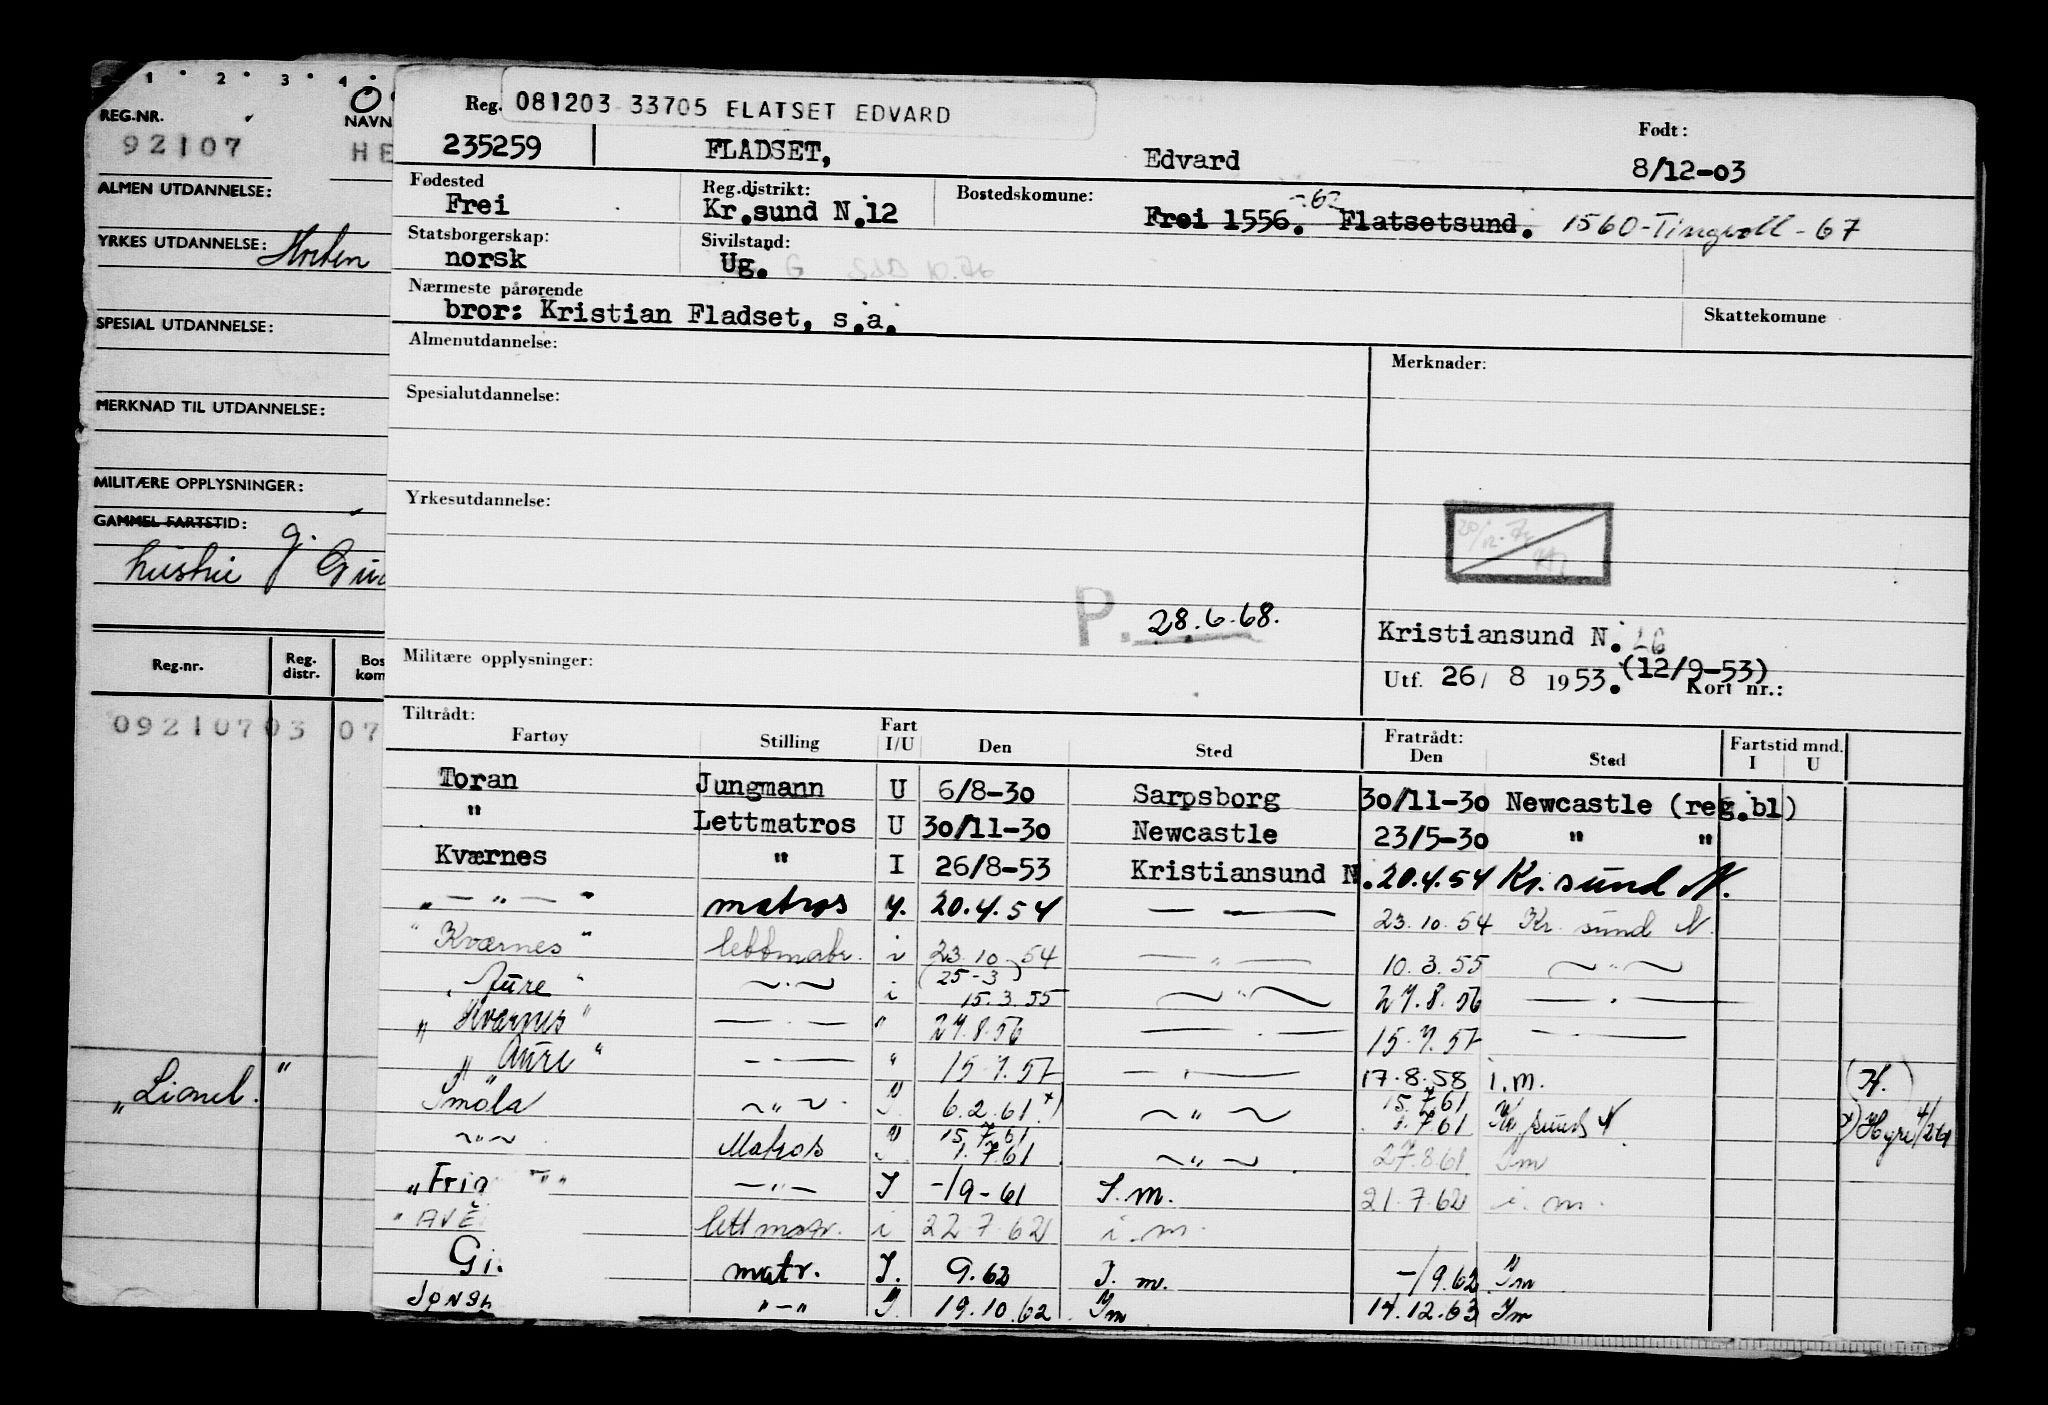 1 2 3 4
REG.NR.
NAVN
92107 HE
ALMEN UTDANNELSE:
YRKES UTDANNELSE: Horten
SPESIAL UTDANNELSE:
MERKNAD TIL UTDANNELSE:
MILITÆRE OPPLYSNINGER:
GAMMEL FARTSTID:
hustru g.
Reg.nr. Reg. distr. Bos kom
09210703 07
"Lionel." "
Reg. 081203 33705 FLATSET EDVARD
Født:
235259 FLADSET, Edvard 8/12-03
Fødested Reg.distrikt: Bostedskomune:
Frei Kr.sund N.12 Frei 1556. -62 Flatsetsund. 1560-Tingvoll-67
Statsborgerskap: Sivilstand:
norsk Ug. G
Nærmeste pårørende
bror: Kristian Fladset, s.a. Skattekomune
Almenutdannelse: Merknader:
Spesialutdannelse:
Yrkesutdannelse:
P. 28.6.68.
Kristiansund N.
Militære opplysninger: Utf. 26/ 8 1953.(12/9-53) Kort nr.:
Tiltrådt: Fratrådt: Fartstid mnd.
Fartøy Stilling Fart I/U Den Sted Den Sted I U
Toran Jungmann U 6/8-30 Sarpsborg 30/11-30 Newcastle (reg.bl)
" Lettmatros U 30/11-30 Newcastle 23/5-30 " "
Kværnes " I 26/8-53 Kristiansund N. 20.4.54 Kr.sund N.
" — " — " matros y. 20.4.54 — — 23.10.54 Kr. sund N.
"Kværnes" lettmatr. i 23.10 54 — " — 10.3.55 ~ " ~
(25-3)
"Aure" ~ " ~ i 15.3.55 ~ " ~ 27.8.56 — " —
"Kværnes" — " — " 27.8.56 — " — 15.7.57 — " —
"Aure" — " — " 15.7.57 — " — 17.8.58 i.m. (H.)
Smøla ~ " ~ I. 6.2.61 x) ~ " ~ 15.7.61 Kr.sund N x) Hyre
1.7.61
~ " ~ Matros I 15.7.61 ~ " ~ 27.8.61 Im
1.7.61
"Fri " — " — I -/9-61 I.m. 21.7.62 i.m.
" AVE lettmatr. i 22.7.62 i.m.
Gi. matr. I. 9.62 I.m. -/9.62 Im
" — " I. 19.10.62 Im 17.12.63 Im